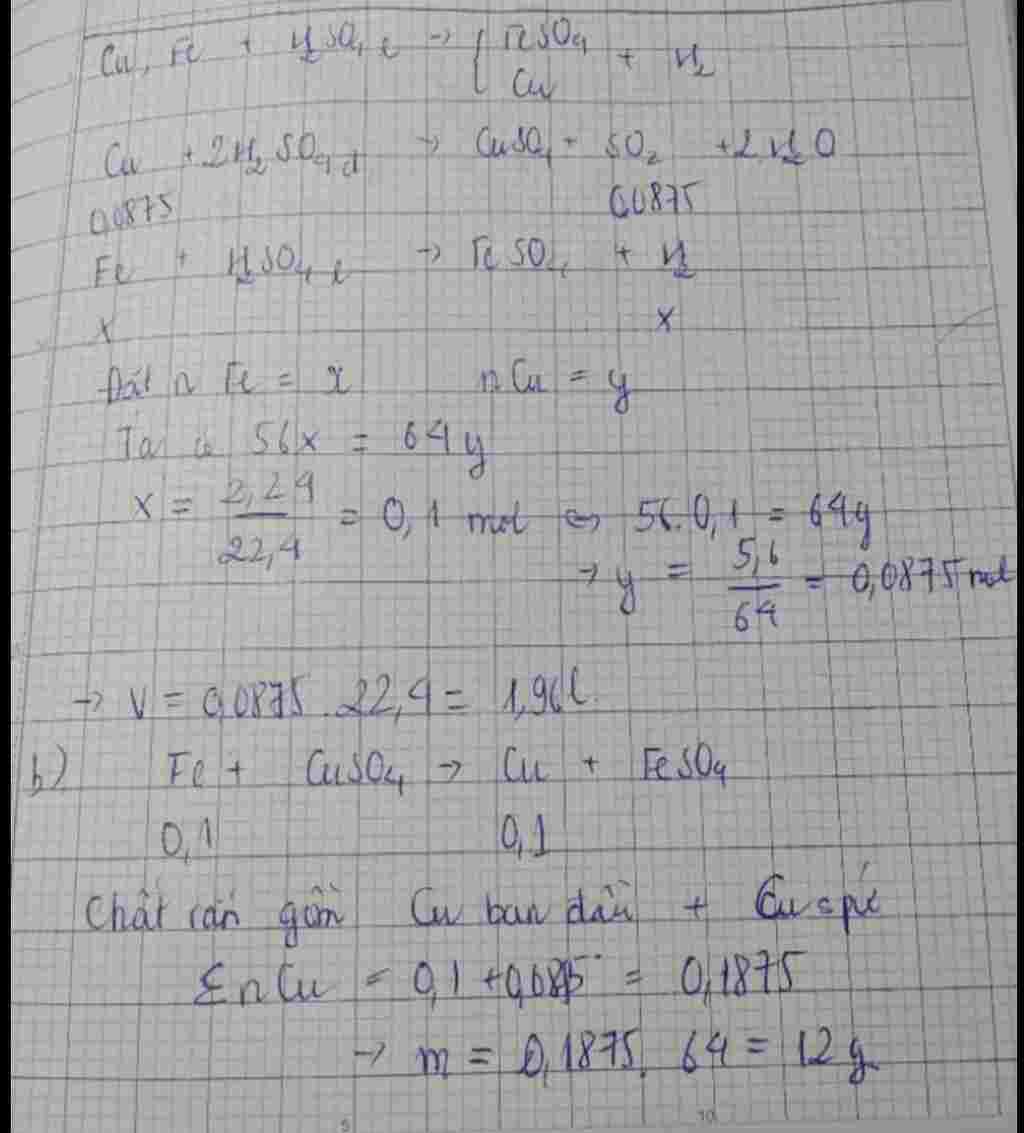 Cu, Fe + H2SO4 l → { FeSO4 + H2
Cu
Cu + 2H2SO4 đ → CuSO4 + SO2 + 2H2O
0,0875 0,0875
Fe + H2SO4 l → FeSO4 + H2
x x
Đặt n Fe = x nCu = y
Ta có 56x = 64y
x = 2,24 / 22,4 = 0,1 mol ⇔ 56.0,1 = 64y
→ y = 5,6 / 64 = 0,0875 mol
→ V = 0,0875.22,4 = 1,96l.
b) Fe + CuSO4 → Cu + FeSO4
0,1 0,1
Chất rắn gồm Cu ban đầu + Cu spứ
ΣnCu = 0,1 + 0,0875 = 0,1875
→ m = 0,1875.64 = 12g